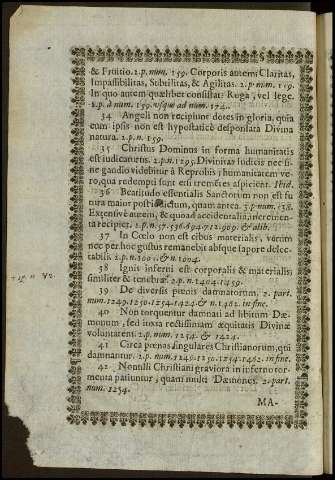 & Fruitio. 2. p. num. 159. Corporis autem: Claritas,
Impassibilitas, Subtilitas, & Agilitas. 2. p. num. 159.
In quo autem quælibet consistat: Roga, vel lege.
2. p. à num. 159. usque ad num. 174.
34 Angeli non recipiunt dotes in gloria, quia
cum ipsis non est hypostaticè desponsata Divina
natura. 2. p. n. 159.
35 Christus Dominus in forma humanitatis
est iudicaturus. 2. p. n. 195. Divinitas Iudicis nec si-
ne gaudio videbitur à Reprobis; humanitatem ve-
ro, qua redempti sunt etsi trementes aspicient. Ibid.
36 Beatitudo essentialis Sanctorum non est fu-
tura maior post Iudicium, quam antea.
Extensivè autem, & quoad accidentalia, incremen-
ta recipiet. & alib.
37 In Cœlo non est cibus materialis, vorum
nec per hoc gustus remanebit absque sapore delec-
tabili. 2. p. n. 1001. & n. 1094.
38 Ignis inferni est corporalis & materialis;
similiter & tenebræ. 2. p. n. 1404. 1459.
39 De diversis pœnis damnatorum. 2. part.
num. 1249. 1250. 1254. 1424. & n. 1482. in fine.
40 Non torquentur damnati ad libitum Dæ-
monum, sed iuxta rectissimam æquitatis Divinæ
voluntatem. 2. p. num. 1254. & 1424.
41 Circa pœnas singulares Christianorum, qui
damnantur. 2. p. num. 1249. 1250. 1254. 1482. in fine.
42 Nonnulli Christiani graviora in inferno tor-
menta patiuntur, quam multi Dæmones. 2. part.
num. 1254.
MA-